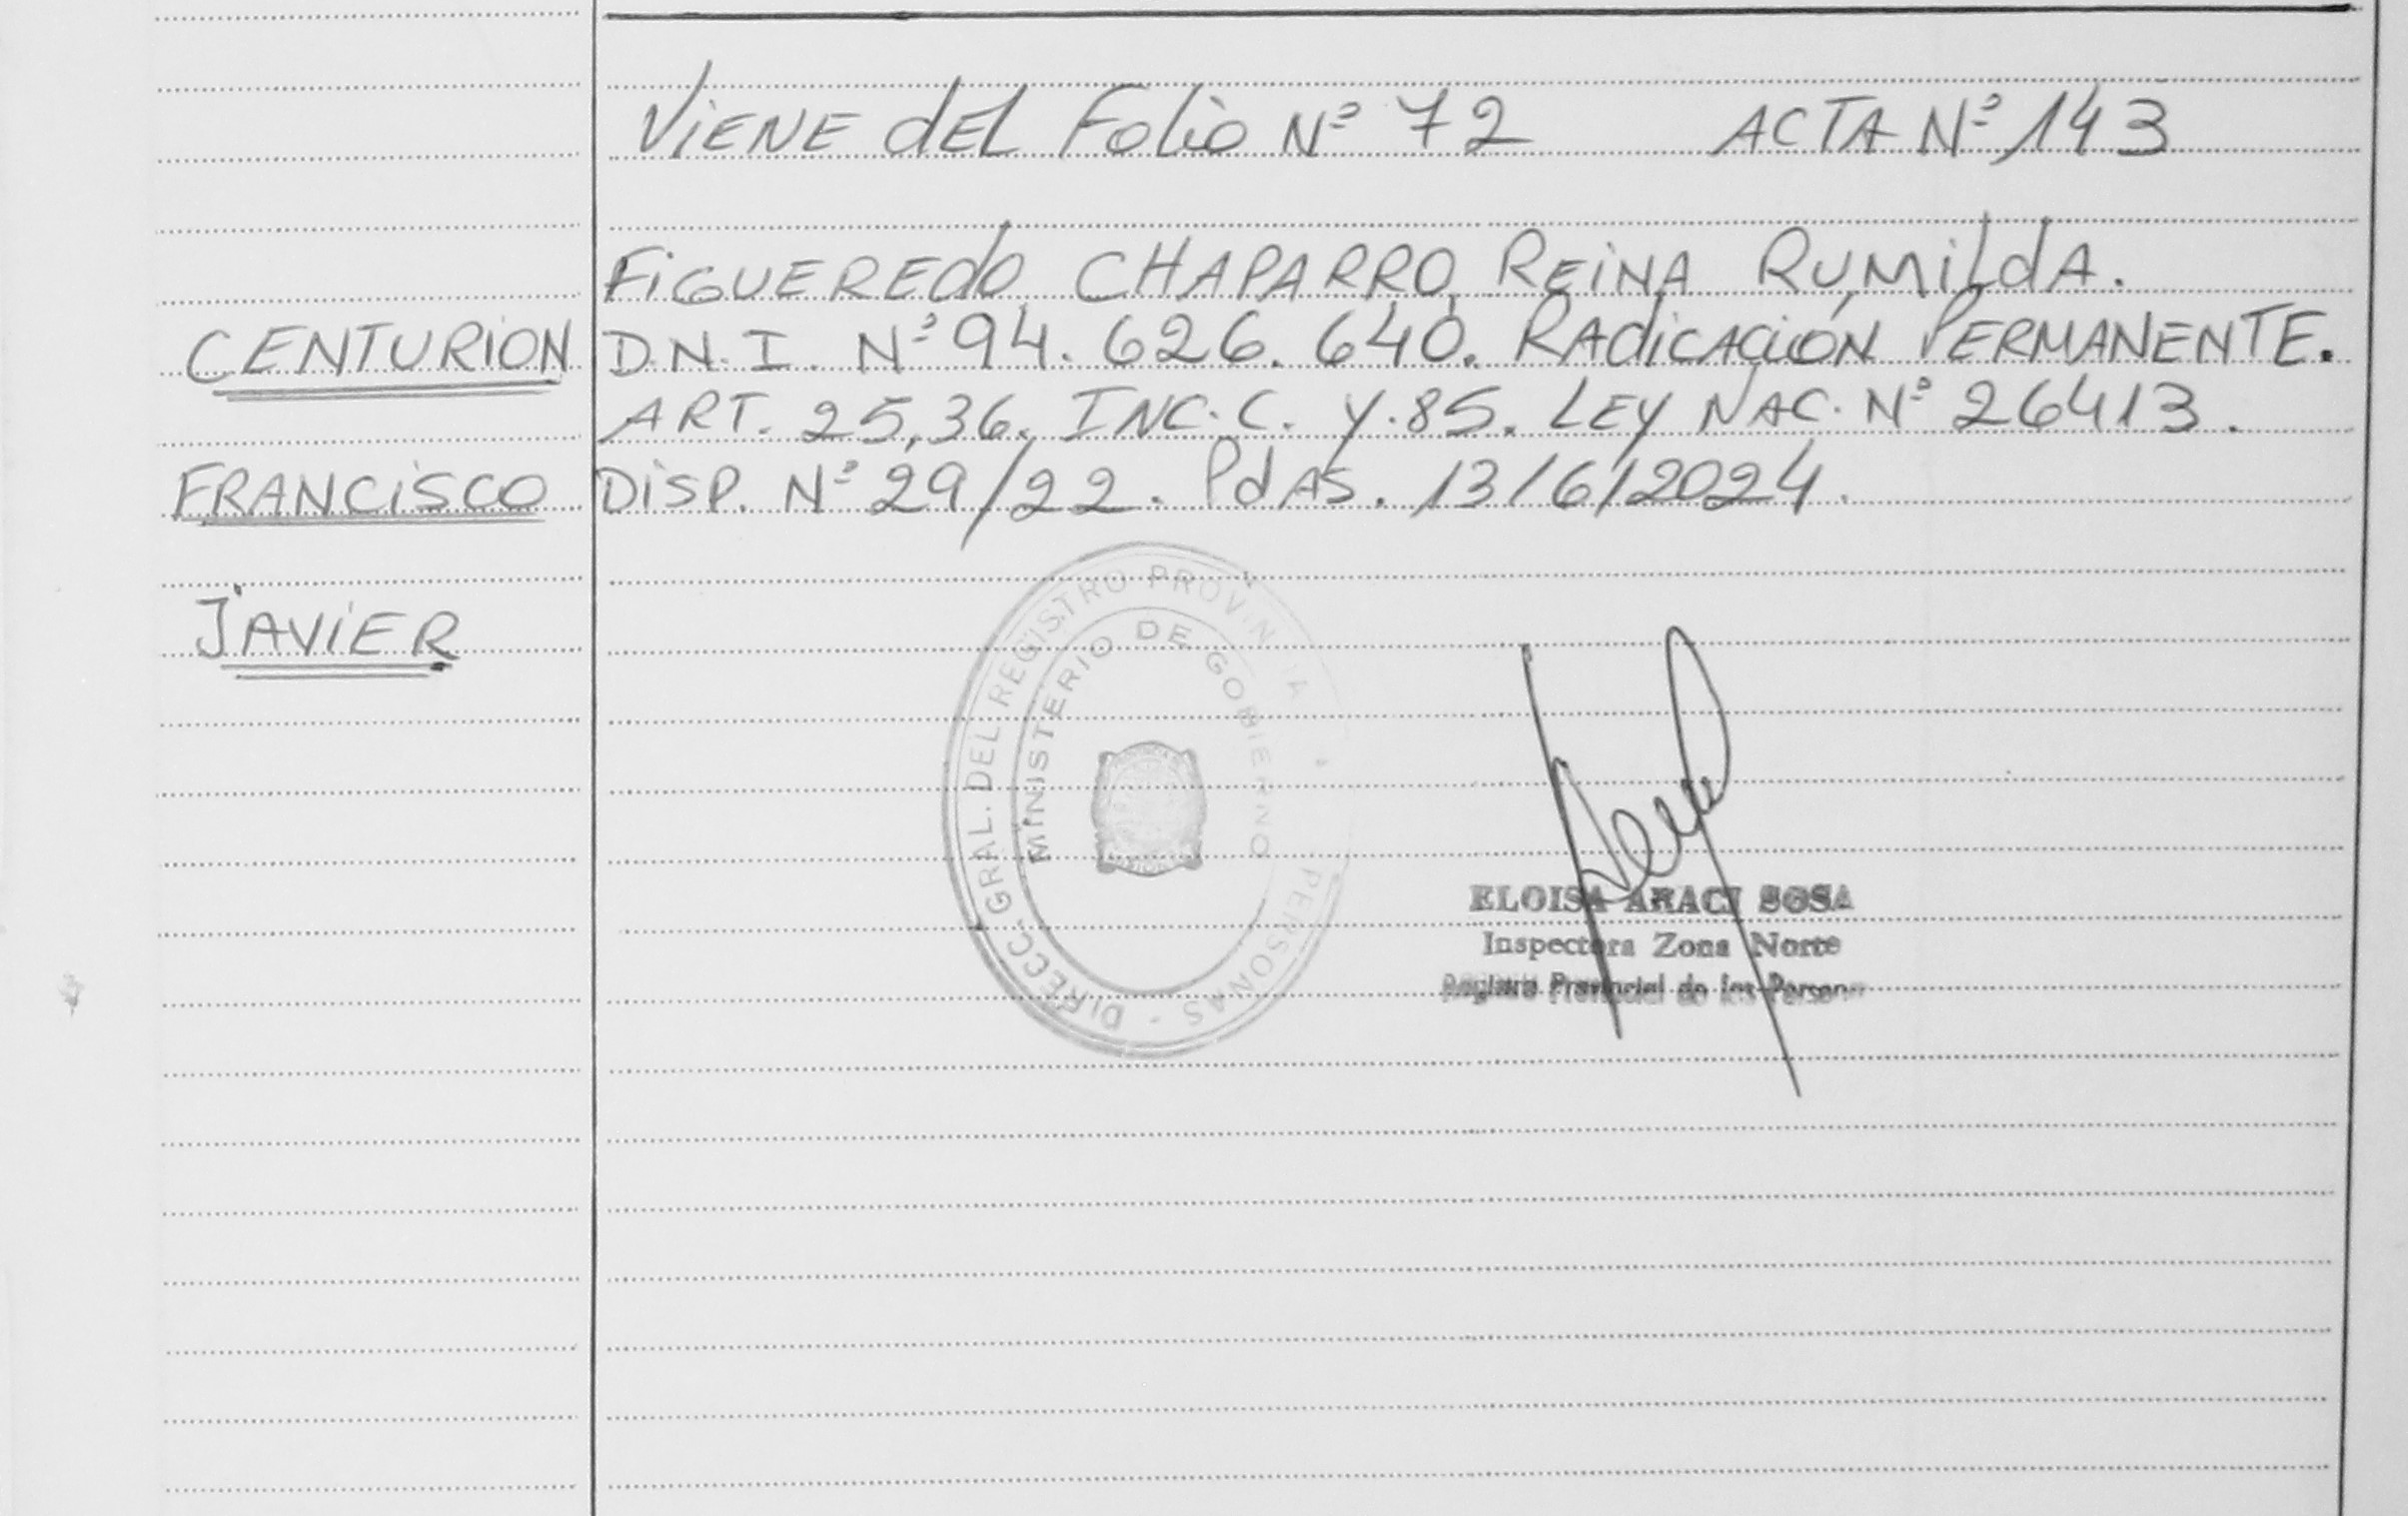 Viene del Folio Nº 72 ACTA Nº 143
FIGUEREdo, CHAPARRO, REINA RUMILdA.
CENTURION D.N.I. Nº 94.626.640. RAdICACIÓN PERMANENTE.
ART. 25,36. INC.C. Y.85. LEY NAC. Nº 26413.
FRANCISCO DISP. Nº 29/22. PdAS. 13/6/2024.
JAVIER
DIRECC. GRAL. DEL REGISTRO PERSONAS
MINISTERIO DE GOBIERNO
ELOISA ARACI SOSA
Inspectora Zona Norte
Registro Provincial de las